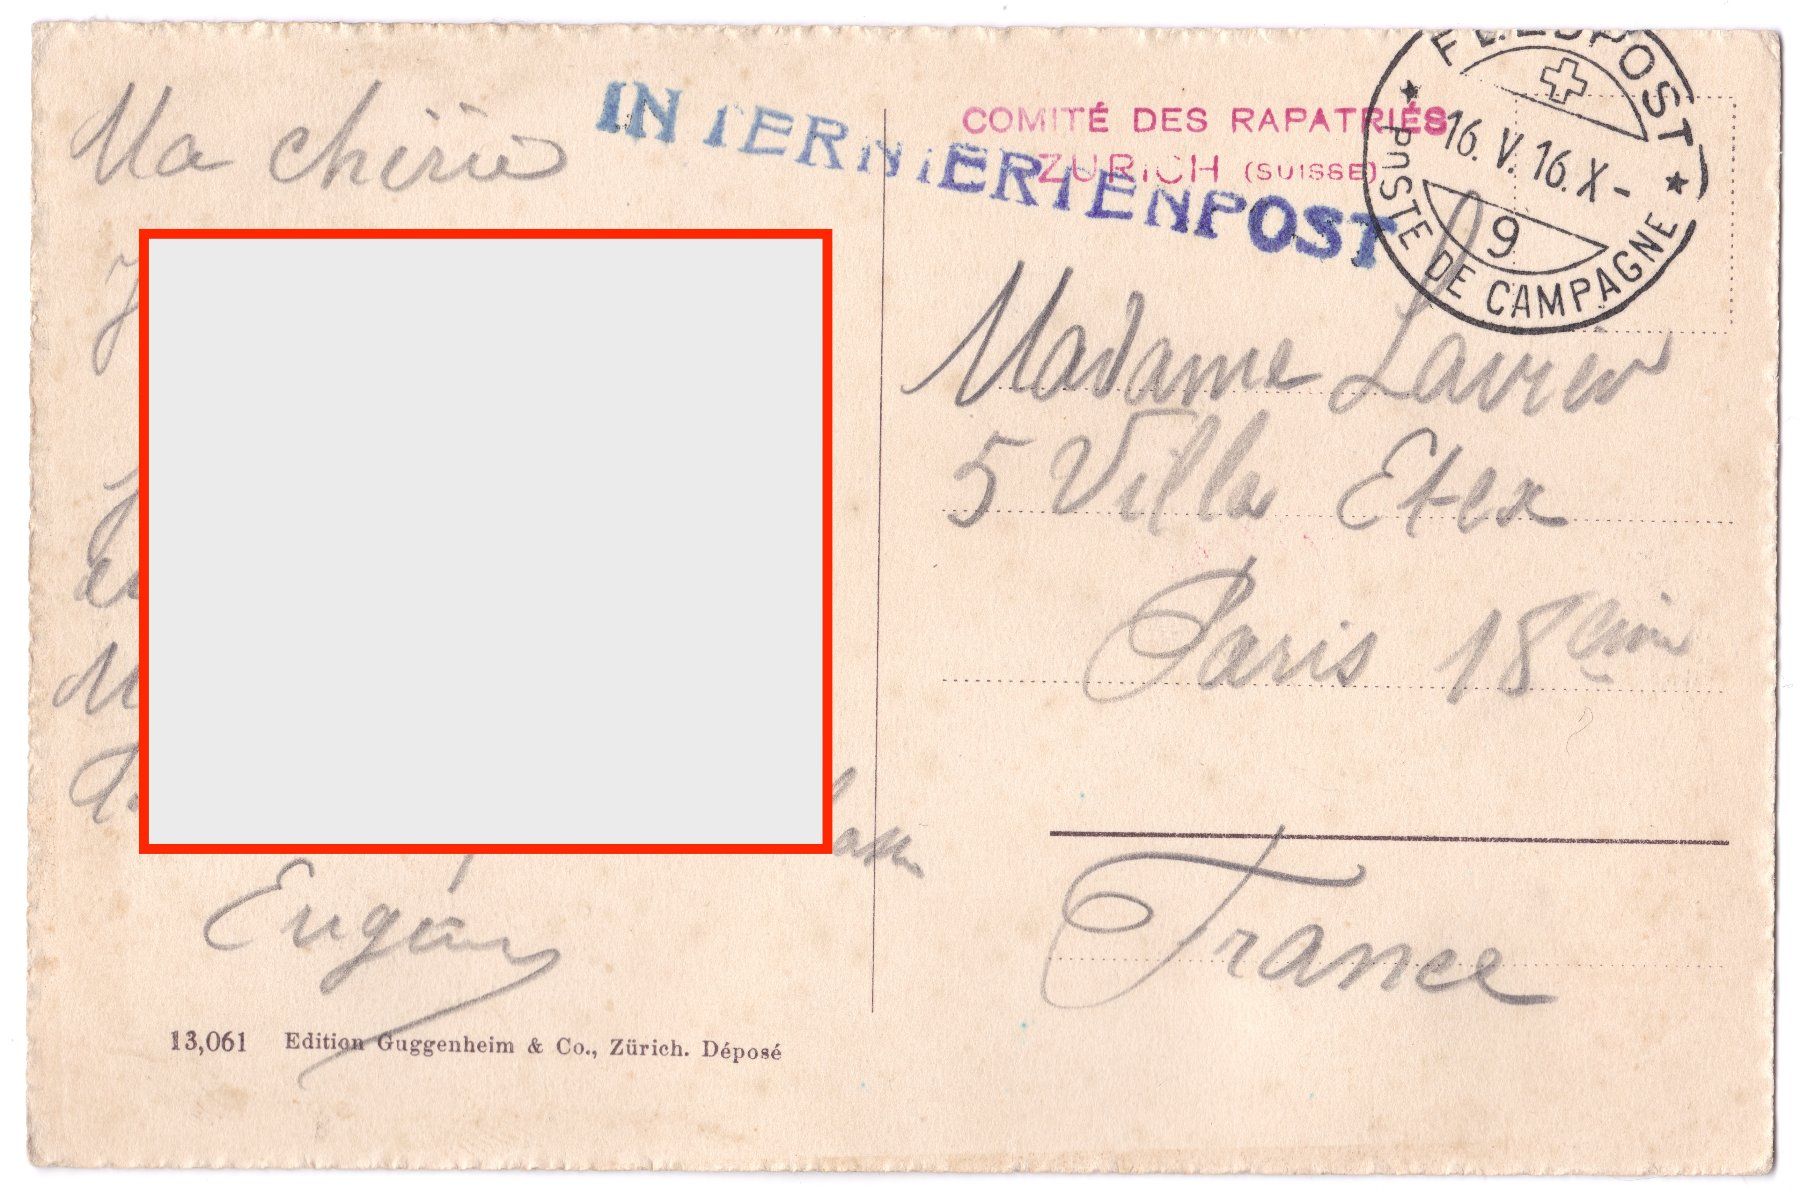 Ma chérie
Eugène
13,061 Edition Guggenheim & Co., Zürich. Déposé
INTERNIERTENPOST
COMITÉ DES RAPATRIÉS
ZURICH (SUISSE)
FELDPOST
16. V. 16. X-
9
POSTE DE CAMPAGNE
Madame
5 Villa Etex
Paris 18ème
France